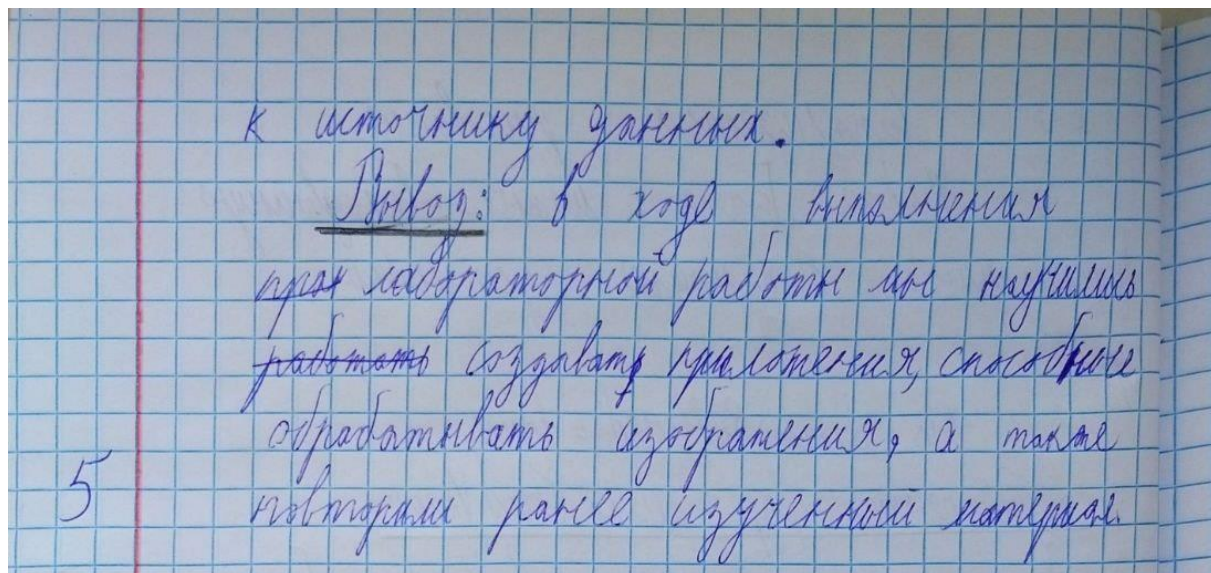 к источнику данных.
Вывод: в ходе выполнения
лабораторной работы мы научились
работать создавать приложения, способные
обрабатывать изображения, а также
5 повторили ранее изученный материал.